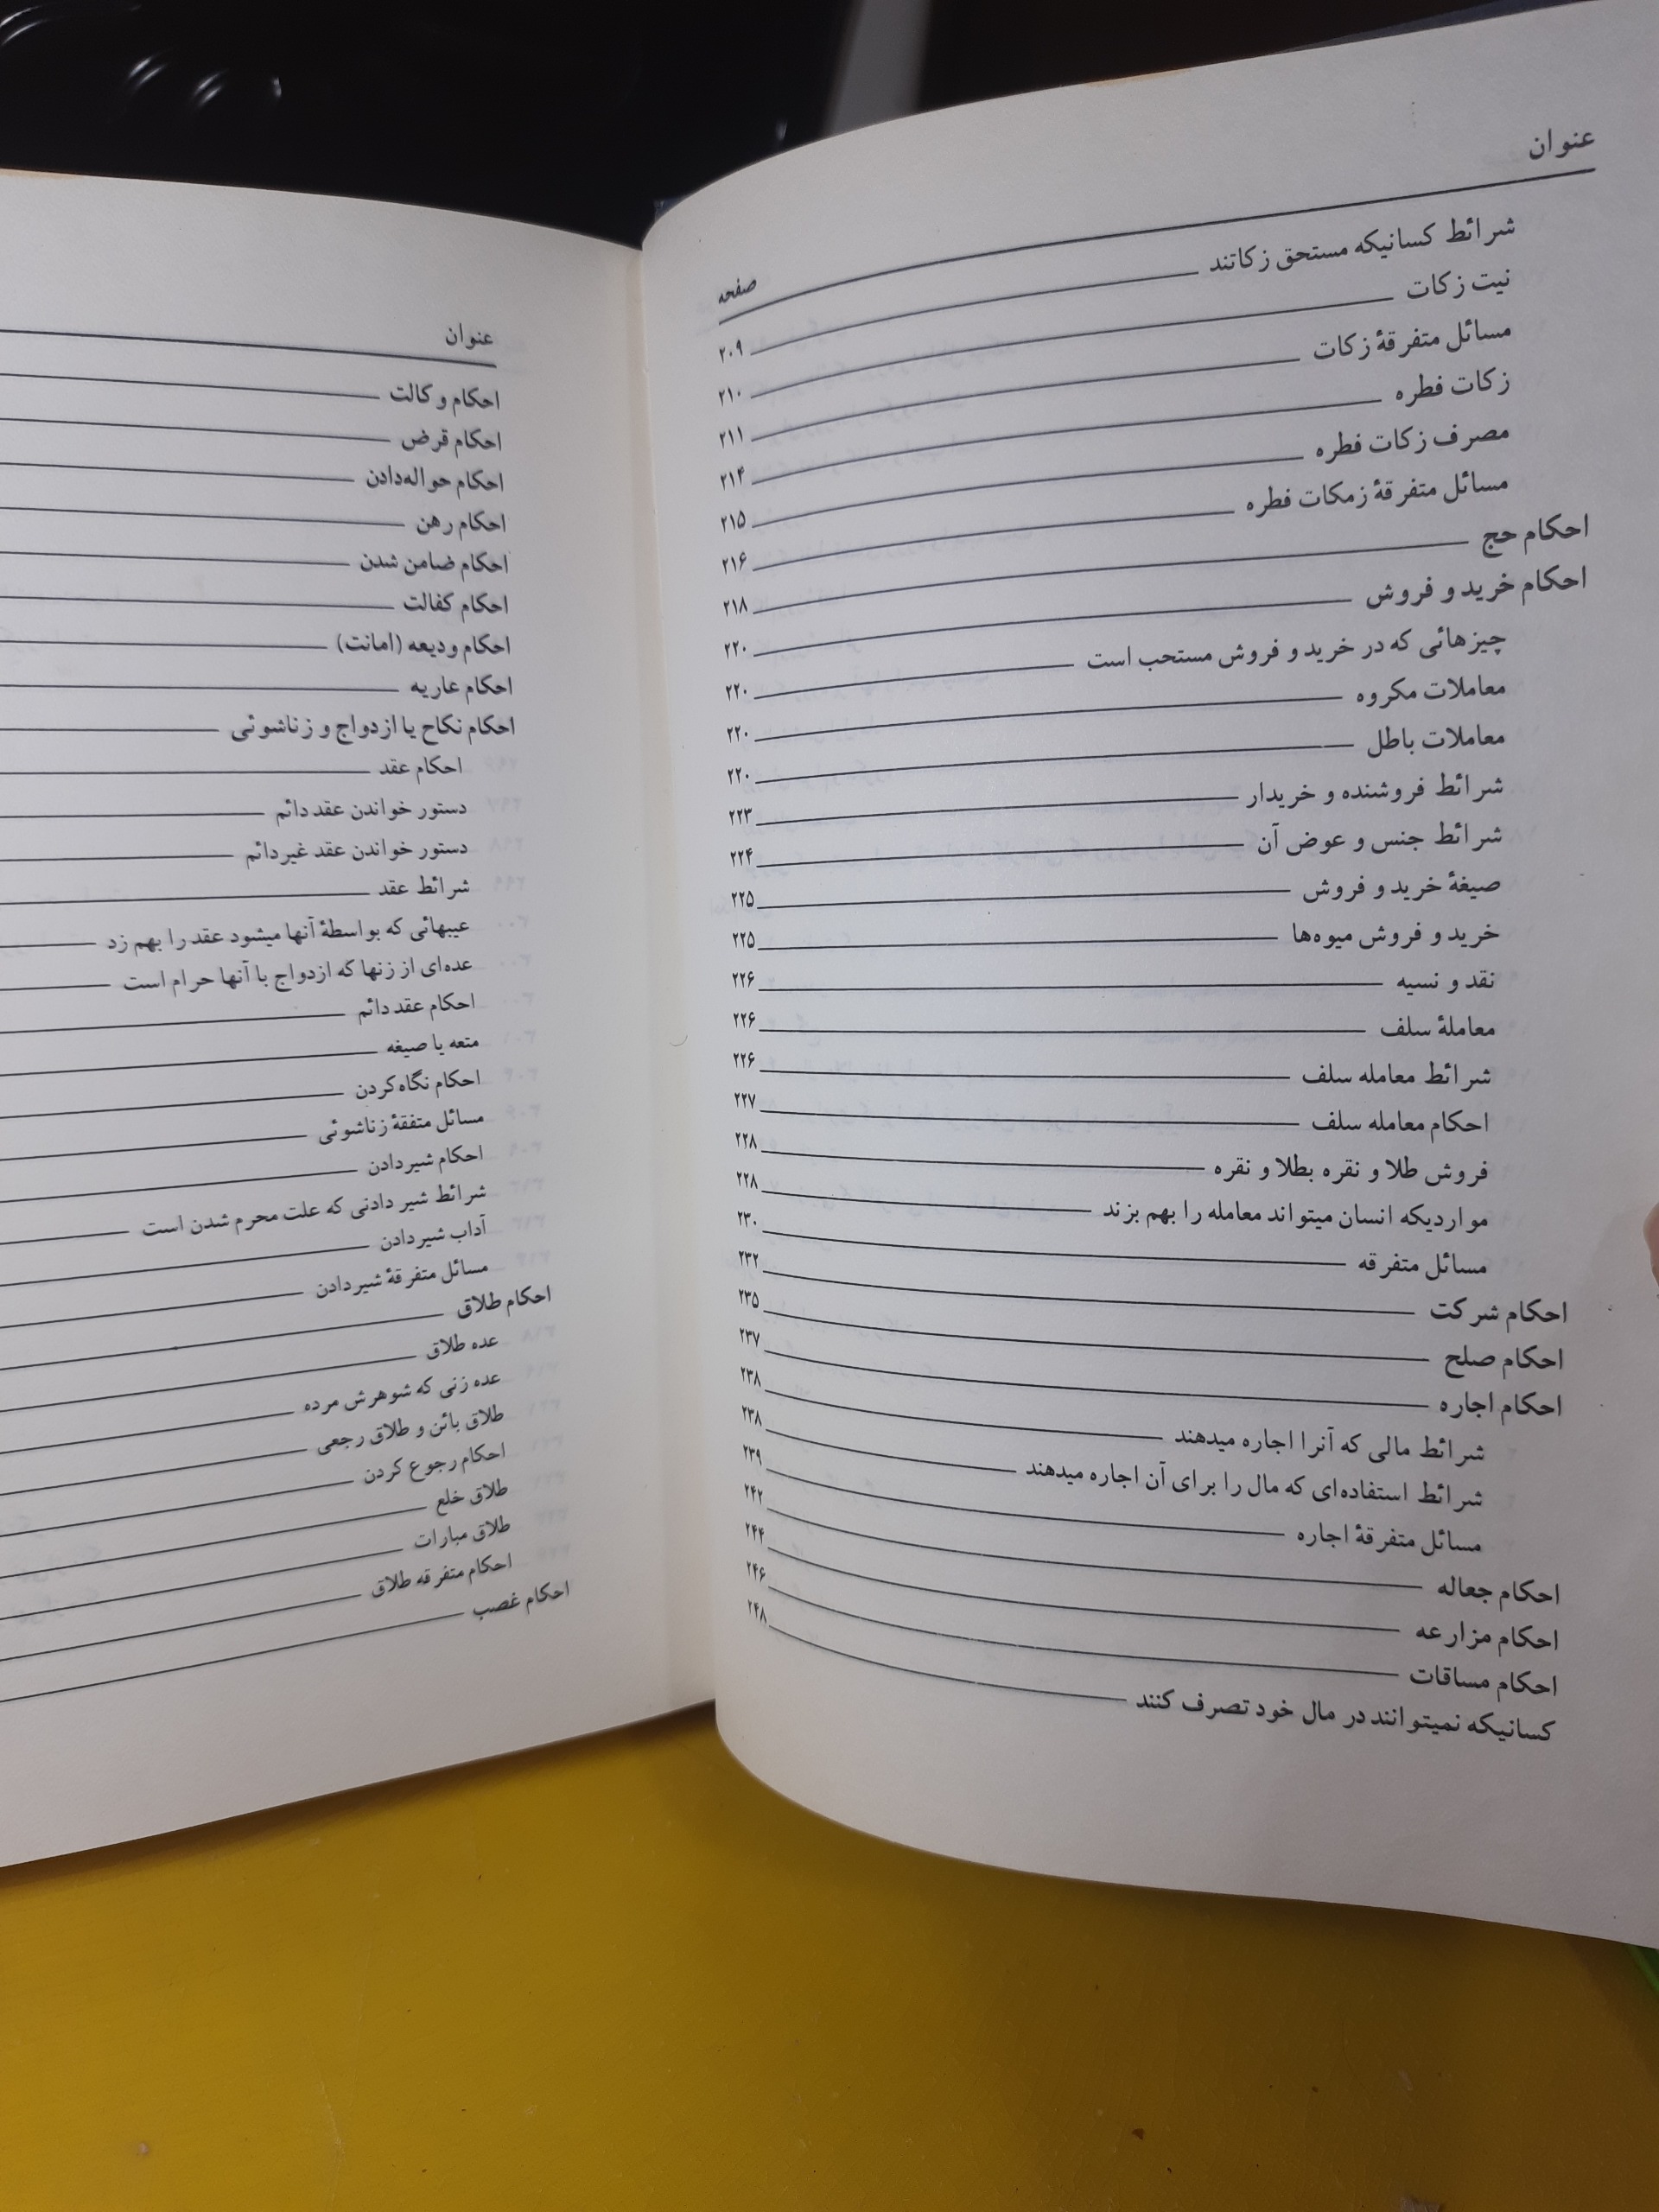 عنوان صفحه
شرائط کسانیکه مستحق زکاتند ۲۰۹
نیت زکات ۲۱۰
مسائل متفرقهٔ زکات ۲۱۱
زکات فطره ۲۱۴
مصرف زکات فطره ۲۱۵
مسائل متفرقهٔ زمکات فطره ۲۱۶
احکام حج ۲۱۸
احکام خرید و فروش ۲۲۰
چیزهائی که در خرید و فروش مستحب است ۲۲۰
معاملات مکروه ۲۲۰
معاملات باطل ۲۲۰
شرائط فروشنده و خریدار ۲۲۳
شرائط جنس و عوض آن ۲۲۴
صیغهٔ خرید و فروش ۲۲۵
خرید و فروش میوه‌ها ۲۲۵
نقد و نسیه ۲۲۶
معاملهٔ سلف ۲۲۶
شرائط معامله سلف ۲۲۶
احکام معامله سلف ۲۲۷
فروش طلا و نقره بطلا و نقره ۲۲۸
مواردیکه انسان میتواند معامله را بهم بزند ۲۲۸
مسائل متفرقه ۲۳۰
احکام شرکت ۲۳۲
احکام صلح ۲۳۵
احکام اجاره ۲۳۷
شرائط مالی که آنرا اجاره میدهند ۲۳۸
شرائط استفاده‌ای که مال را برای آن اجاره میدهند ۲۳۸
مسائل متفرقهٔ اجاره ۲۳۹
احکام جعاله ۲۴۲
احکام مزارعه ۲۴۴
احکام مساقات ۲۴۶
کسانیکه نمیتوانند در مال خود تصرف کنند ۲۴۸
عنوان
احکام وکالت
احکام قرض
احکام حواله‌دادن
احکام رهن
احکام ضامن شدن
احکام کفالت
احکام ودیعه (امانت)
احکام عاریه
احکام نکاح یا ازدواج و زناشوئی
احکام عقد
دستور خواندن عقد دائم
دستور خواندن عقد غیردائم
شرائط عقد
عیبهائی که بواسطهٔ آنها میشود عقد را بهم زد
عده‌ای از زنها که ازدواج با آنها حرام است
احکام عقد دائم
متعه یا صیغه
احکام نگاه‌کردن
مسائل متفقهٔ زناشوئی
احکام شیردادن
شرائط شیر دادنی که علت محرم شدن است
آداب شیردادن
مسائل متفرقهٔ شیردادن
احکام طلاق
عده طلاق
عده زنی که شوهرش مرده
طلاق بائن و طلاق رجعی
احکام رجوع کردن
طلاق خلع
طلاق مبارات
احکام متفرقه طلاق
احکام غصب